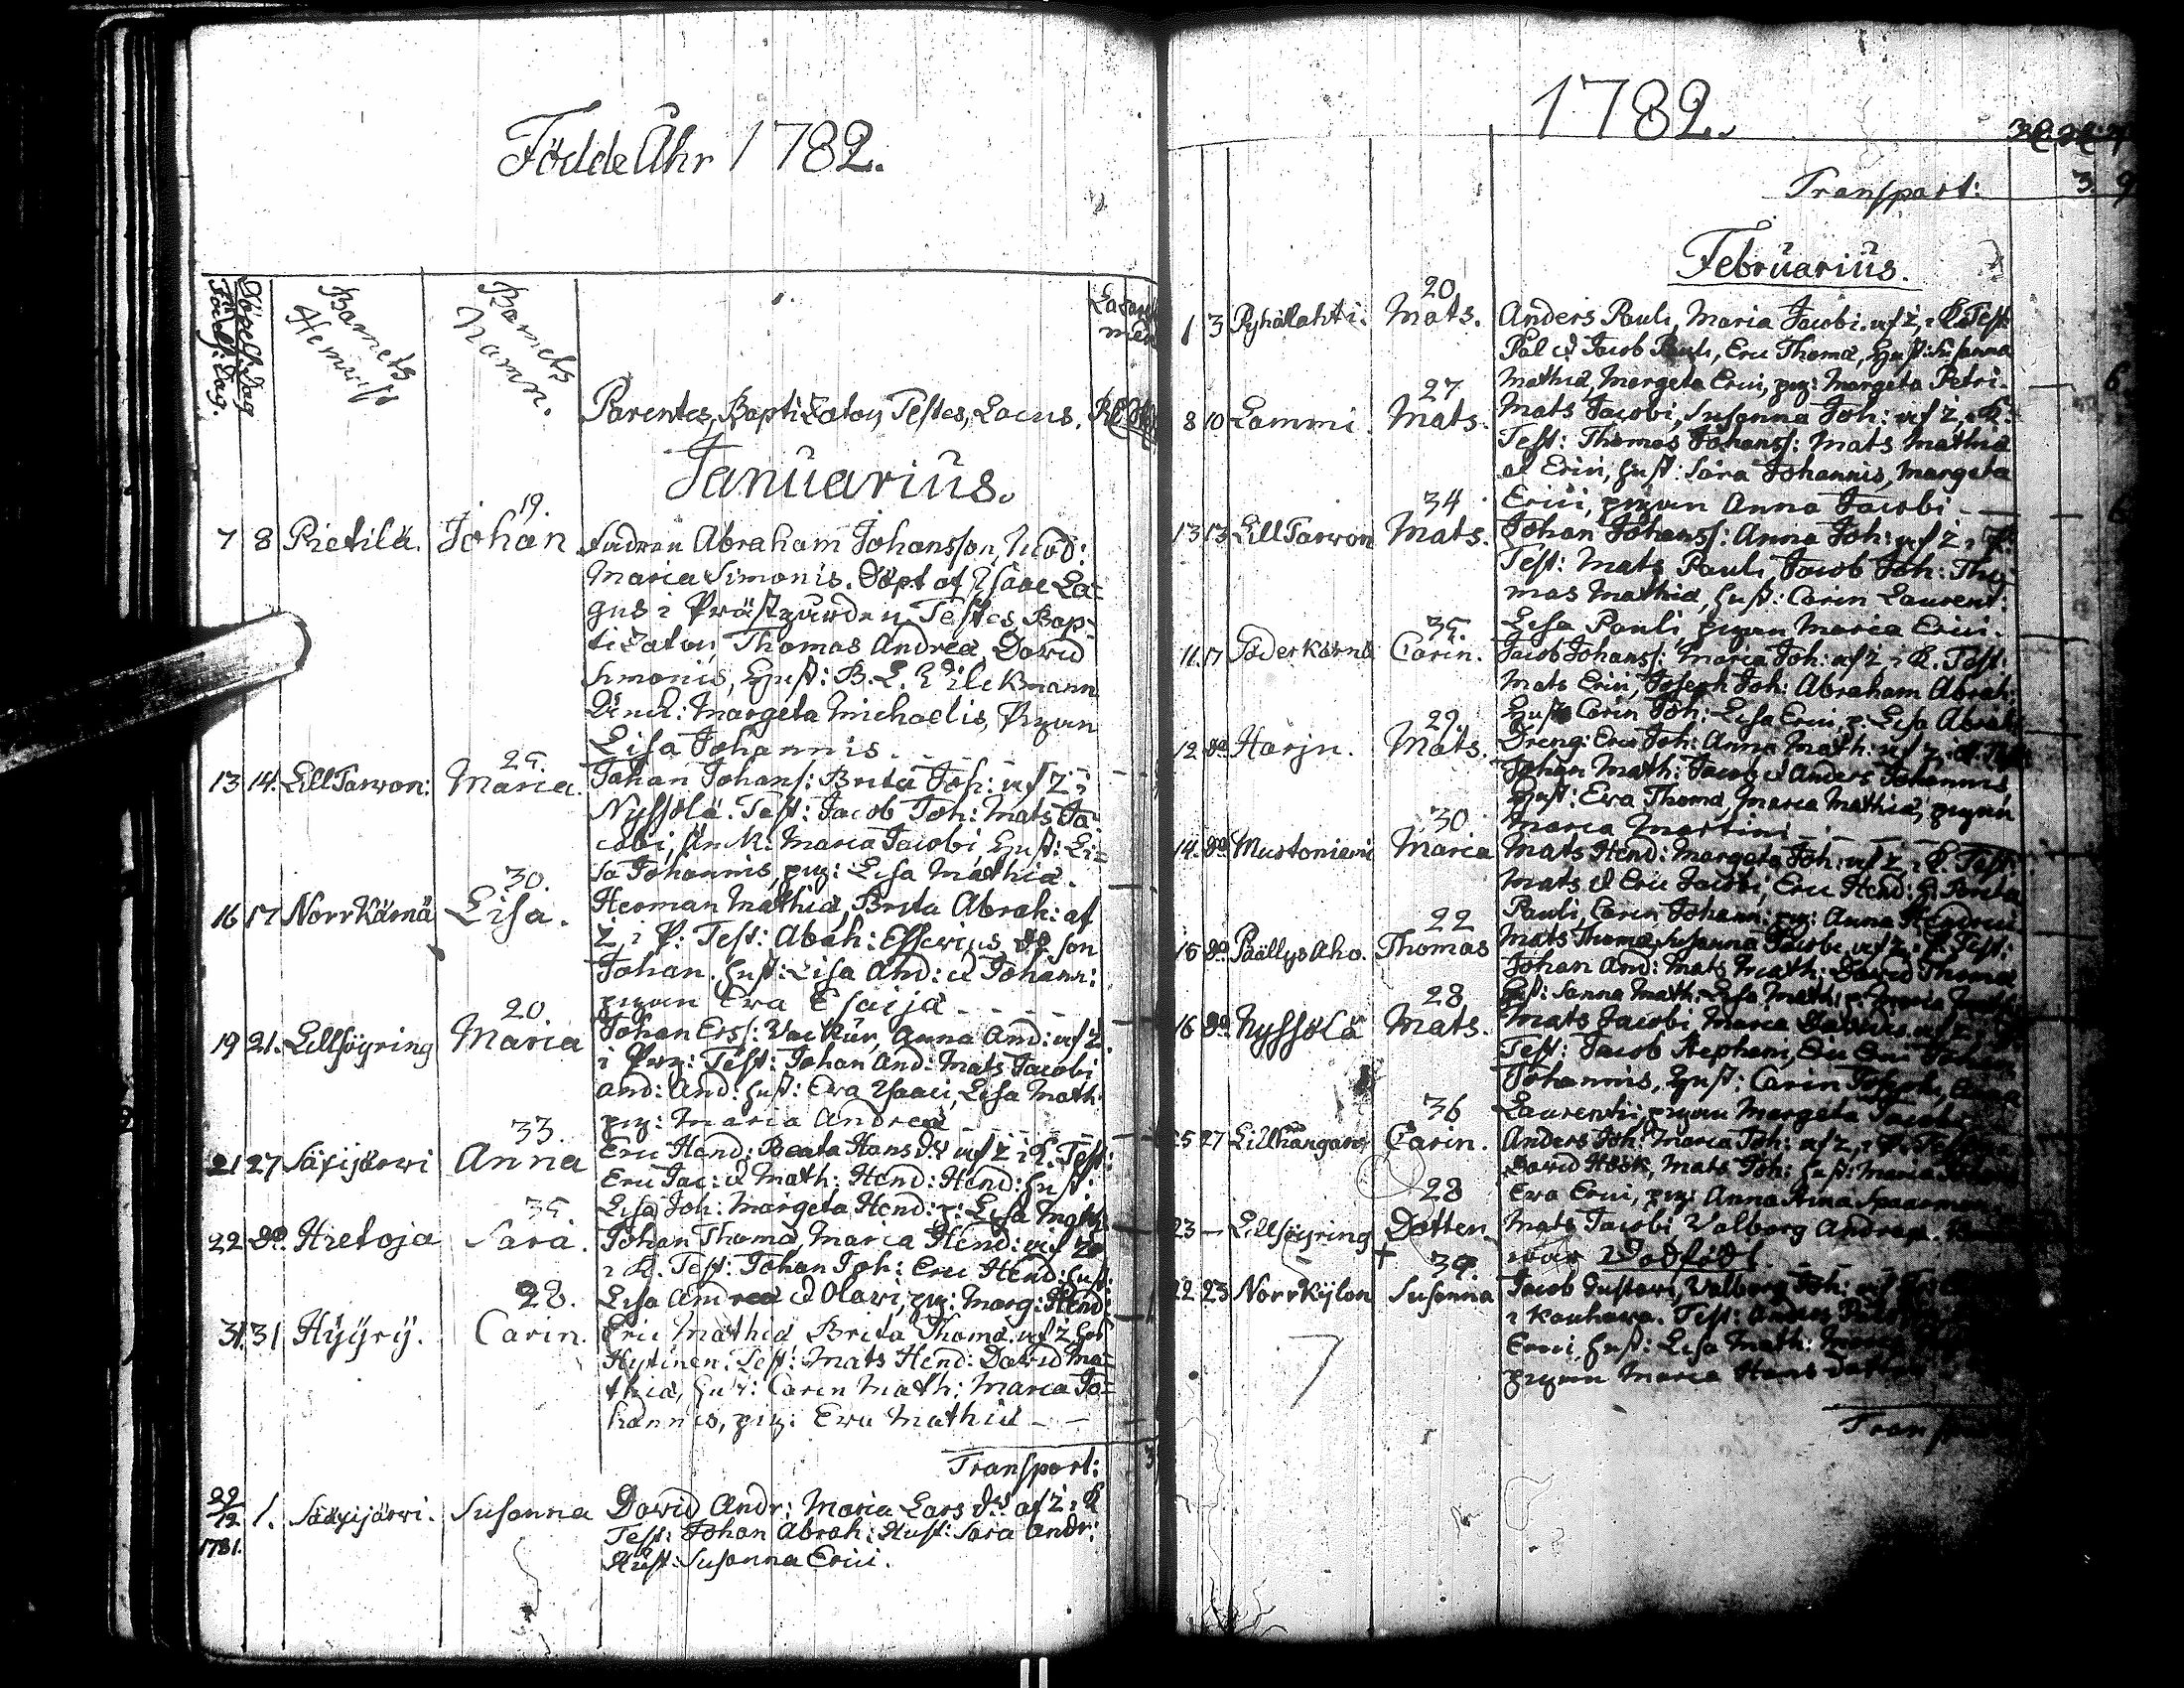 Födde Åhr 1782.
Födelse: Dag.
Döpelse Dag
Barnets Hemwist
Barnets Namn.
Parentes, Baptizator, Testes, Locus.
Januarius.
19.
7 8 Pietilä. Johan Fadren Abraham Johansson, Mod:
Maria Simonis. Döpt af Isaac La=
gus i Prästgården Testes, Bap=
tizator, Thomas Andreæ David
Simonis, Hust: B. L.
Margeta Michaelis, Pigan
Lisa Johannis.
25.
13 14. LillTarwon: Maria. Johan Johans: Brita Joh: af Z i
Nyssölä. Test: Jacob Joh: Mats Ja=
cobi, Maria Jacobi Hust: Li=
sa Johannis, pig: Lisa Mathiæ.
30.
16 17 NorrKärnä Lisa. Herman Mathiæ, Brita Abrah: af
Z i P: Test: Abrah: Son
Johan. hust: Lisa And: & Johann:
pigan Ewa Esaiæ
20.
19 21. Lillsöyring Maria Johan Erss: Anna And: af Z.
i Prg: Test: Johan And: Mats Jacobi
And: And: hust: Ewa Isaaci, Lisa Math:
pig: Maria Andreæ
33.
21 27 Säxijärwi Anna Eric Hend: Beata Hans dr af Z i K. Test:
Eric Jac: & Math: Hend: Hend: hust:
Lisa Joh: Margeta Hend: p: Lisa Math:
35.
22 do. Hietoja Sara. Johan Thomæ, Maria Hend: af Z
i K. Test: Johan Joh: Eric Hend: hust:
Lisa Andreæ & Olavi, pig: Marg: Hend:
28.
31. 31 Hÿÿrÿ. Carin. Eric Mathiæ Brita Thomæ. af Z hos
Hytinen. Test: Mats Hend: David Ma=
thiæ, hust: Carin Math: Maria Jo=
hannis, pig: Ewa Mathiæ
Transport: 3
29/12 1781. 1. Säxijärwi. Susanna David Andr: Maria Lars dr. af Z i K
Test: Johan Abrah: Hust: Sara Andr:
Hust: Susanna Erici.
1782.
Transport: 3. 9
Februarius.
20
1 3 Pyhälahti. Mats. Anders Pauli, Maria Jacobi. af Z, i K. Test:
Pål & Jacob Pauli, Eric Thomæ, Hust: Susanna
Mathiæ, Margeta Erici, pig: Margeta Petri 6
27
8 10 Lammi. Mats. Mats Jacobi, Susanna Joh: af Z, i K.
Test: Thomas Johanss: Mats Mathiæ
et Erici, hust: Sara Johannis, Margeta
Erici, pigan Anna Jacobi 6
34
13 13 LillTarwon Mats. Johan Johanss: Anna Joh: af Z i P.
Test: Mats Pauli Jacob Joh: Tho=
mas Mathiæ, hust: Carin Laurent:
Lisa Pauli, pigan Maria Erici.
35.
11. 17 Söderkärnä Carin. Jacob Johanss: Maria Joh: af Z i K. Test:
Mats Erici, Joseph Joh: Abraham Abrah:
Hust: Carin Joh: Lisa Erici p: Lisa Abrah:
29.
12 do Harju. Mats. Dreng: Eric Joh: Anna Math: af Z
Johan Math: Jacob & Anders Johannis,
Hust: Ewa Thomæ, Maria Mathiæ, pigan
Maria Martini
30
14. do Mustoniemi Maria Mats Hend: Margeta Joh: af Z i K. Test:
Mats & Eric Jacobi, Eric Hend: h: Brita
Pauli, Carin Johann: pig: Anna Hendrici
22
15 do Päällysaho. Thomas Mats Thomæ, Susanna Jacobi af Z, i K. Test:
Johan And: Mats Math: David Thomæ
hust: Sanna Math: Lisa Math: p: Maria
28
16 do Nyssölä Mats. Mats Jacobi Maria
Test: Jacob Stephani, Eric
Johannis, Hust: Carin Joseph:
Laurentii, pigan Margeta Jacobi
36
25 27 Lillkångas Carin. Anders Joh: Maria Joh: af Z, i K. Test:
David Höök, Mats Joh: hust: Maria
Ewa Erici, pig: Anna
28
23 — Lillsöyring Dotten Mats Jacobi, Valborg Andreæ.
war Dödfödt
39.
22 23 NorrKylon Susanna Jacob Gustavi, Valborg Joh: af
i Kauhawa. Test: Anders
Erici, hust: Lisa Math:
pigan Maria Hans dotter
7
Transport